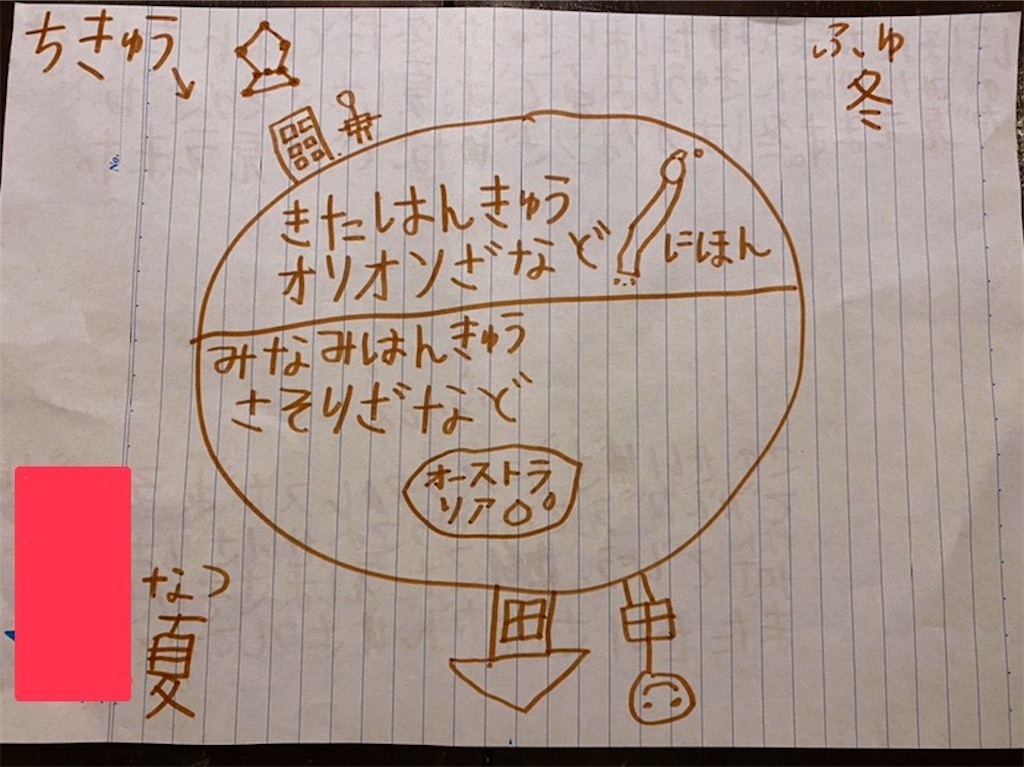 ちきゅう
ふゆ
冬
No.
きたはんきゅう
オリオンざなど
にほん
みなみはんきゅう
さそりざなど
オーストラ
リア
なつ
夏